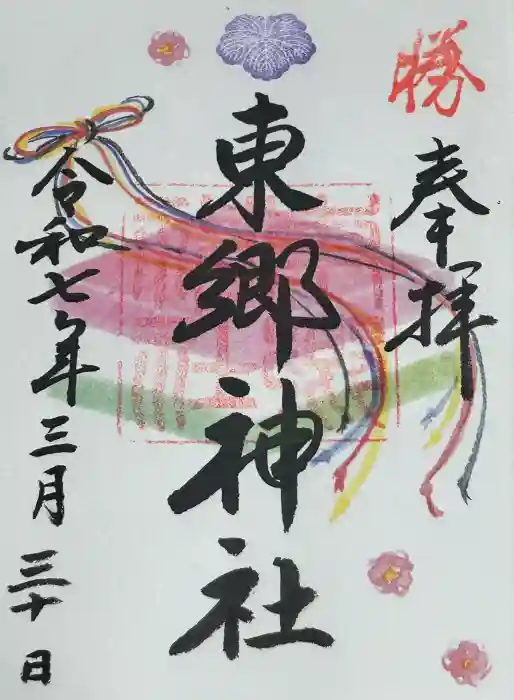 勝
奉拝
東郷神社
令和七年三月三十日